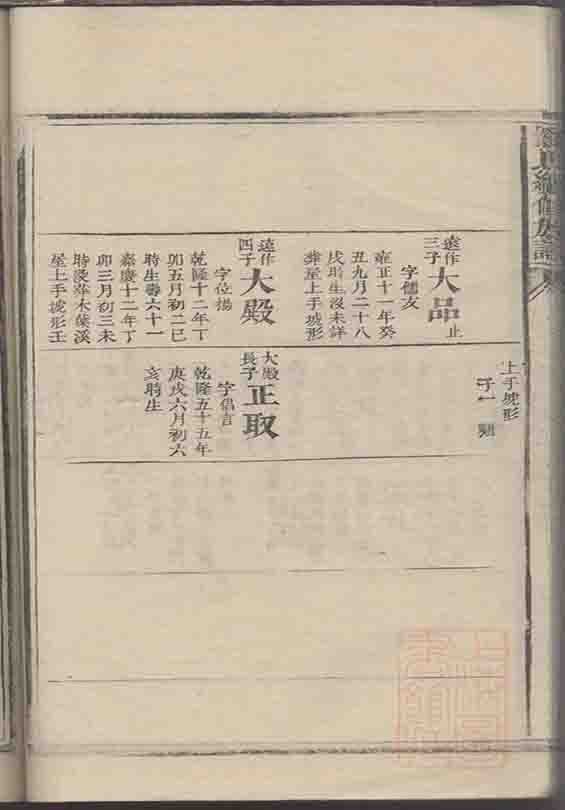 氏續修族譜
上手坡形
子一
遠作
三子
大品
止
字儒友
雍正十一年癸
丑九月二十八
戌時生沒未詳
葬屋上手坡形
遠作
四子
大殿
字位揚
乾隆十二年丁
卯五月初二巳
時生壽六十一
嘉慶十二年丁
卯三月初三未
時沒葬木葉溪
屋上手坡形壬
大殿
長子
正取
字倡言
乾隆五十五年
庚戌六月初六
亥時生